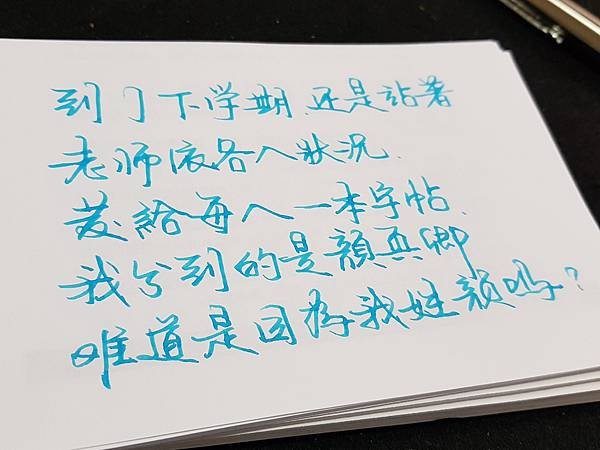 到了下学期.还是站著
老师依各人狀况.
发給每人一本字帖.
我分到的是顏真卿
难道是因為我姓顏吗?